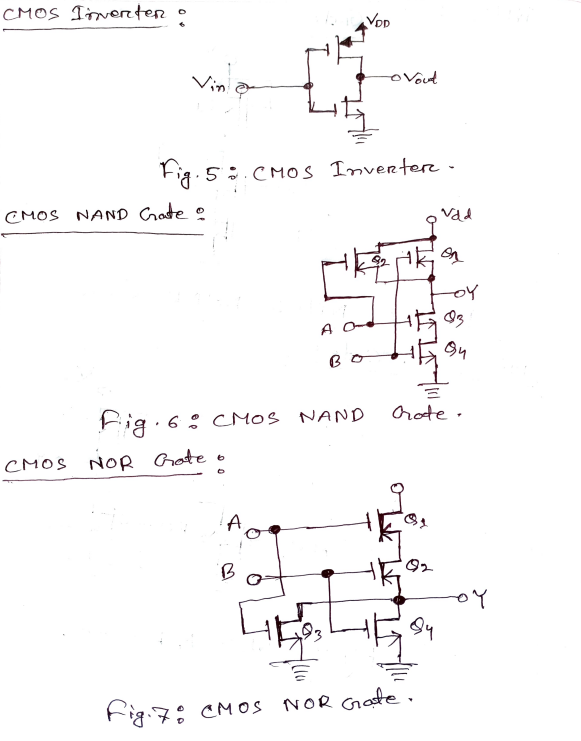 CMOS Inverter :
VDD
Vin
Vout
Fig. 5 : CMOS Inverter.
CMOS NAND Gate :
Vdd
Q2 Q1
Y
A Q3
B Q4
Fig. 6 : CMOS NAND Gate.
CMOS NOR Gate :
A Q1
B Q2
Y
Q3 Q4
Fig. 7 : CMOS NOR Gate.